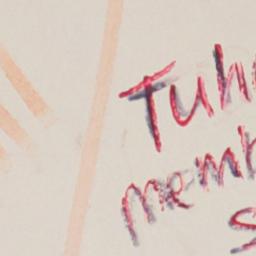 Tuh
memb
S